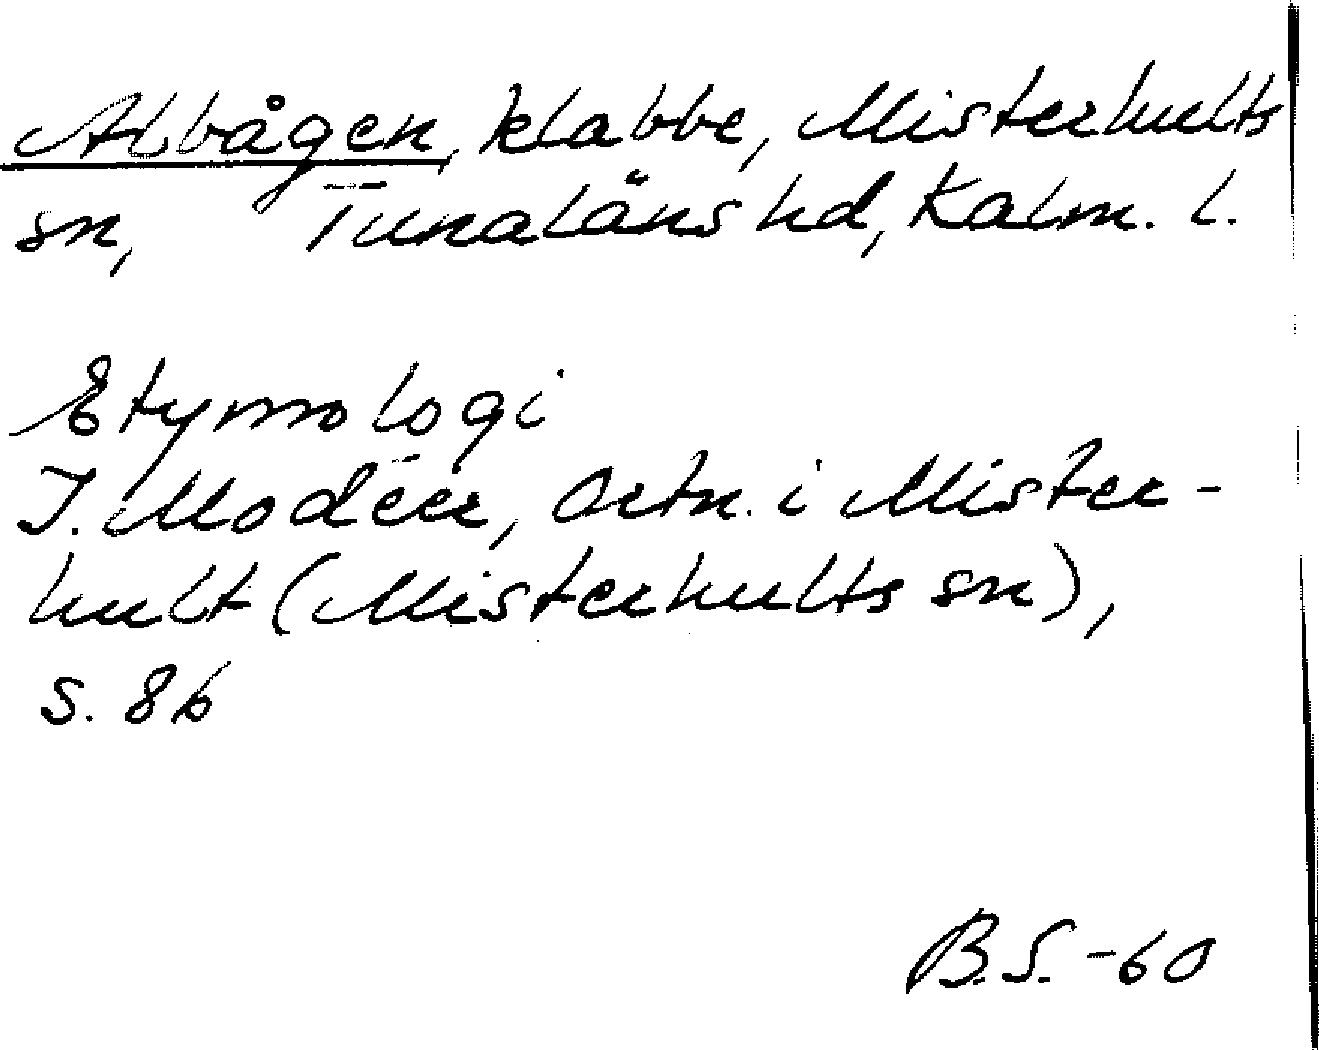 Albågen, klabbe, Misterhults
sn, Tunaläns hd, Kalm. l.
Etymologi
I. Modéer, Ortn. i Mister-
hult (Misterhults sn),
s. 86
B.S. -60